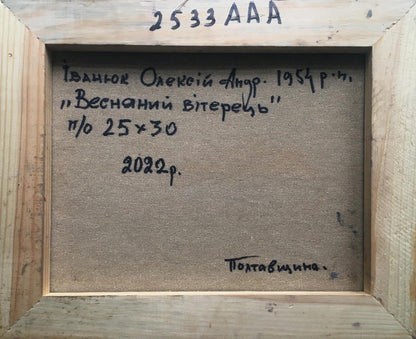 2533 ААА
Іванюк Олексій Андр. 1954 р.н.
„Весняний вітерець"
п/о 25×30
2022р.
Полтавщина.